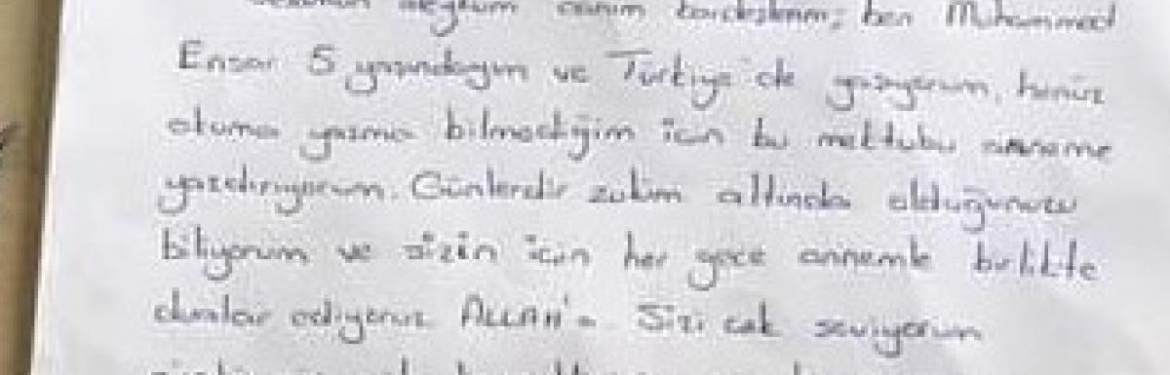 aleyküm canım kardeşlerim; ben Muhammed
Ensar 5 yaşındayım ve Türkiye'de yaşıyorum, henüz
okuma yazma bilmediğim için bu mektubu anneme
yazdırıyorum. Günlerdir zulüm altında olduğunuzu
biliyorum ve sizin için her gece annemle birlikte
dualar ediyoruz ALLAH'a. Sizi çok seviyorum